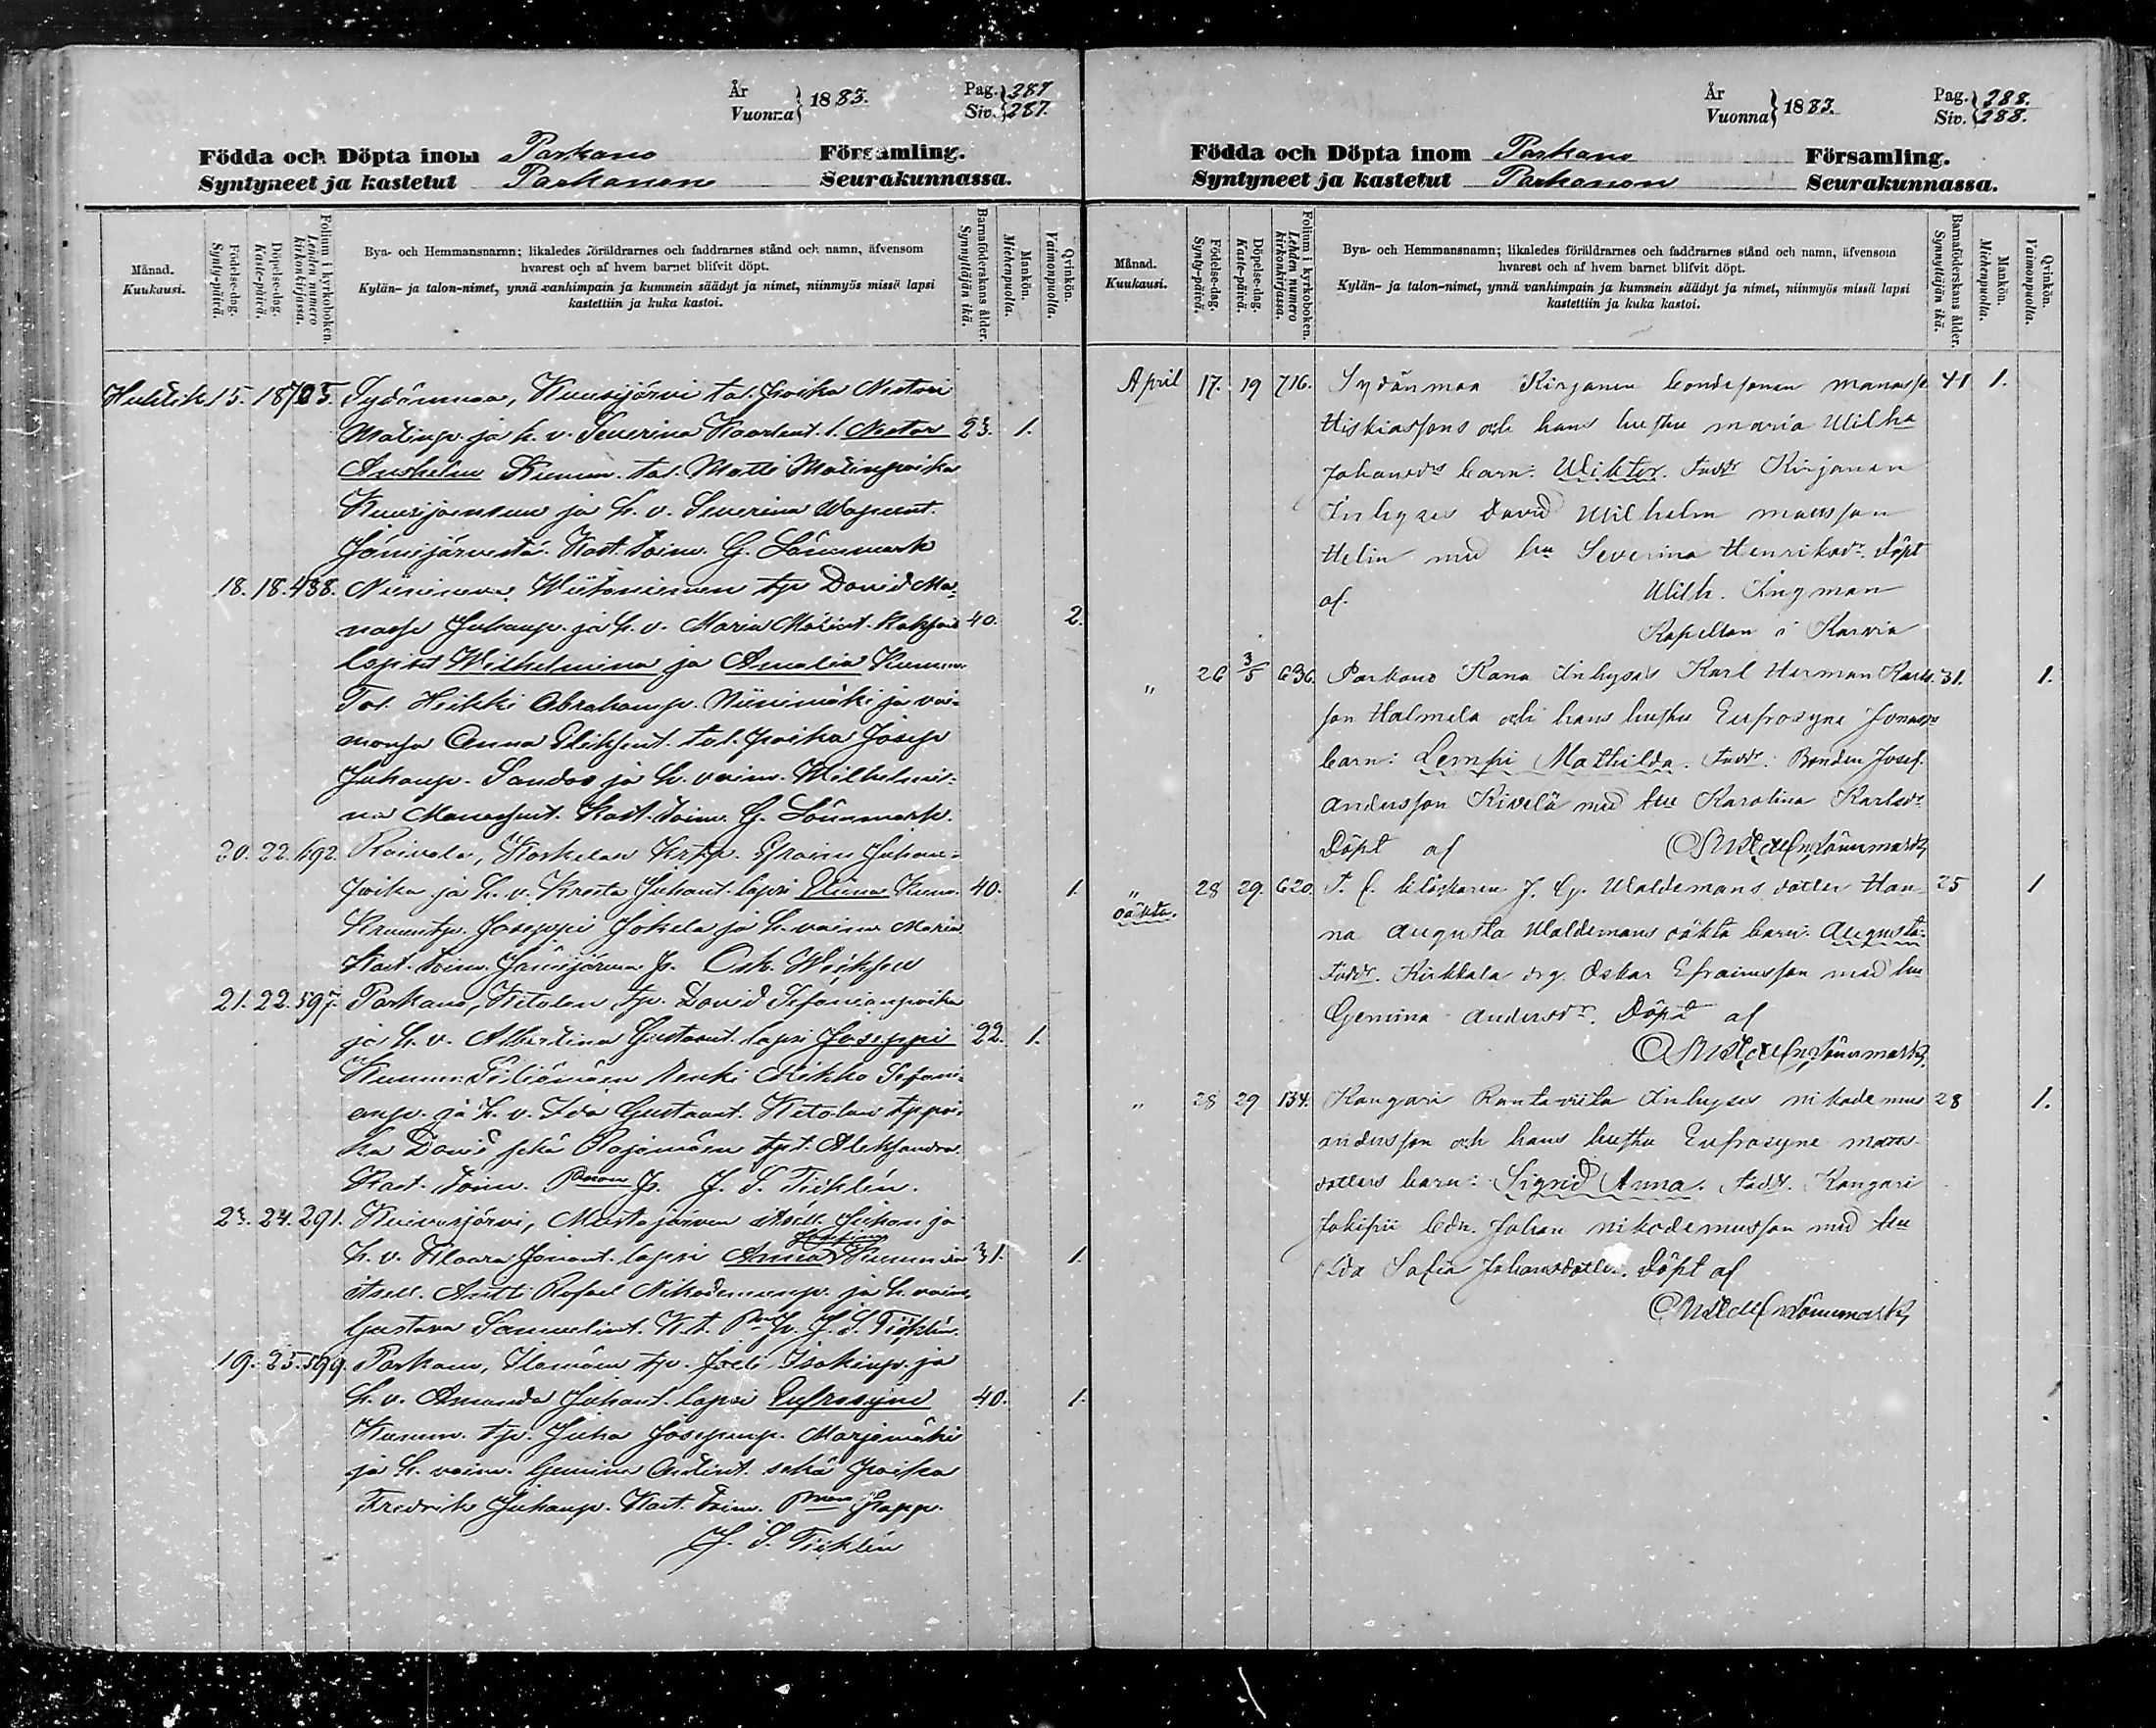 År
Vuonna } 1883.
Pag. } 287
Siv. } 287.
Födda och Döpta inom Parkano Församling.
Syntyneet ja kastetut Parkanon Seurakunnassa.
Månad.
Kuukausi.
Födelse-dag.
Synty-päivä.
Döpelse-dag.
Kaste-päivä.
Folium i kyrkoboken.
Lehden numero kirkonkirjassa.
Bya- och Hemmansnamn; likaledes föräldrarnes och faddrarnes stånd och namn, äfvensom
hvarest och af hvem barnet blifvit döpt.
Kylän- ja talon-nimet, ynnä vanhimpain ja kummein säädyt ja nimet, niinmyös missä lapsi
kastettiin ja kuka kastoi.
Barnaföderskans ålder.
Synnyttäjän ikä.
Mankön.
Miehenpuolia.
Qvinkön.
Vaimonpuolia.
Huhtik. 15. 18. Sydänmaa, Kuusijärvi tal. poika Nestori
Matinp. ja h. v. Severina Kaarlent. l. Nestor 23. 1.
Anshelm Kumm. tal. Matti Matinpoika
ja h. v. Severina
Jämijärvestä. Kast. toim. G. Lönnmark
18. 18. 488. Niinineva, Wiitaniemen tp David Ma-
nasse Juhanp. ja h. v. Maria Matint. kaksois 40. 2.
lapset Wilhelmina ja Amalia Kumm.
Tal. Heikki Abrahamp. Niinimäki ja vai-
monsa Anna tal. poika Josep
Juhanp. Sandos ja h. vaim. Wilhelmi-
na Kast. toim. G. Lönnmark.
20. 22. 692. Raivala, Koskelan Efraim Juhan-
poika ja h. v. Kresta Juhant. lapsi Elina Kum. 40. 1.
Joseppi Jokela ja h. vaimo Maria
Kast. toim. Jämijärven Js. Osk.
21. 22. 597. Parkano, Kitolan tp. David Sefanianpoika
ja h. v. Albertina Gustavant. lapsi Joseppi 22. 1.
Kumm: Mikko Sefani-
anp. ja h. v. Ida Gustavant. Kitolan tp poi-
ka David sekä Rajamäen tpt. Aleksandra
Kast. toim. Js. J. S. Ticklén.
23. 24. 291. Kuivasjärvi, Mustajärven itsell. Juhan ja
Josefina
h. v. Klaara lapsi Anna Kummina 31. 1.
itsell. Antti Rafael Nikodemusp. ja h. vaim.
Gustava Samuelint. K. t. J. S. Ticklén.
19. 25. 599. Parkano, tp. Joeli Isakinp. ja
h. v. Amanda Juhant. lapsi Eufrosyne 40. 1.
Kumm. tp. Juha Josepinp. Marjamäki
ja h. vaim. Gemina sekä poika
Fredrik Juhanp. Kast. toim. Papp.
J. S. Ticklén
År
Vuonna } 1883.
Pag. } 288.
Siv. } 288.
Födda och Döpta inom Parkano Församling.
Syntyneet ja kastetut Parkanon Seurakunnassa.
Månad.
Kuukausi.
Födelse-dag.
Synty-päivä.
Döpelse-dag.
Kaste-päivä.
Folium i kyrkoboken.
Lehden numero kirkonkirjassa.
Bya- och Hemmansnamn; likaledes föräldrarnes och faddrarnes stånd och namn, äfvensom
hvarest och af hvem barnet blifvit döpt.
Kylän- ja talon-nimet, ynnä vanhimpain ja kummein säädyt ja nimet, niinmyös missä lapsi
kastettiin ja kuka kastoi.
Barnaföderskans ålder.
Synnyttäjän ikä.
Mankön.
Miehenpuolia.
Qvinkön.
Vaimonpuolia.
April 17. 19 716. Sydänmaa Kirjanen bondesonen Manasse 41 1.
Hiskiassons och hans hustru Maria Wilha
Johansdr barn: Wiktor. Faddr Kirjanen
Inhyses David Wilhelm Mansson
Helin med hu Severina Henriksdr. Döpt
af. Wilh. Ingman
Kapellan i Karvia
" 26 3/5 636. Parkano Kana Inhyses Karl Herman Karls- 31. 1.
son Halmela och hans hustru Eufrosyne Jonasdr
barn: Lempi Mathilda. Faddr: Bonden Josef
Andersson Kivelä med hu Karolina Karlsdr
Döpt af Lönnmark
" 28 29. 620. klockaren J. G. Waldemans dotter Han- 25 1
oäkta. na Augusta Waldemans oäkta barn: Augusta.
Faddr. Kirkkala drg. Oskar Efraimsson med hu
Gemina Andersdr. Döpt af
Lönnmark.
" 28 29 134. Kangari Rantaviita Inhyses Nikodemus 28 1.
Andersson och hans hustru Eufrosyne Mans-
dotters barn: Sigrid Anna. Faddr. Kangari
bdn. Johan Nikodemusson med hu
Ida Sofia Johansdotter. Döpt af
Lönnmark